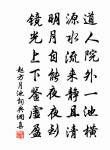 道人院外一池横
源水流来静且清
明月自能夜夜到
镜光上下鉴虚盈
赵方月池词典网集